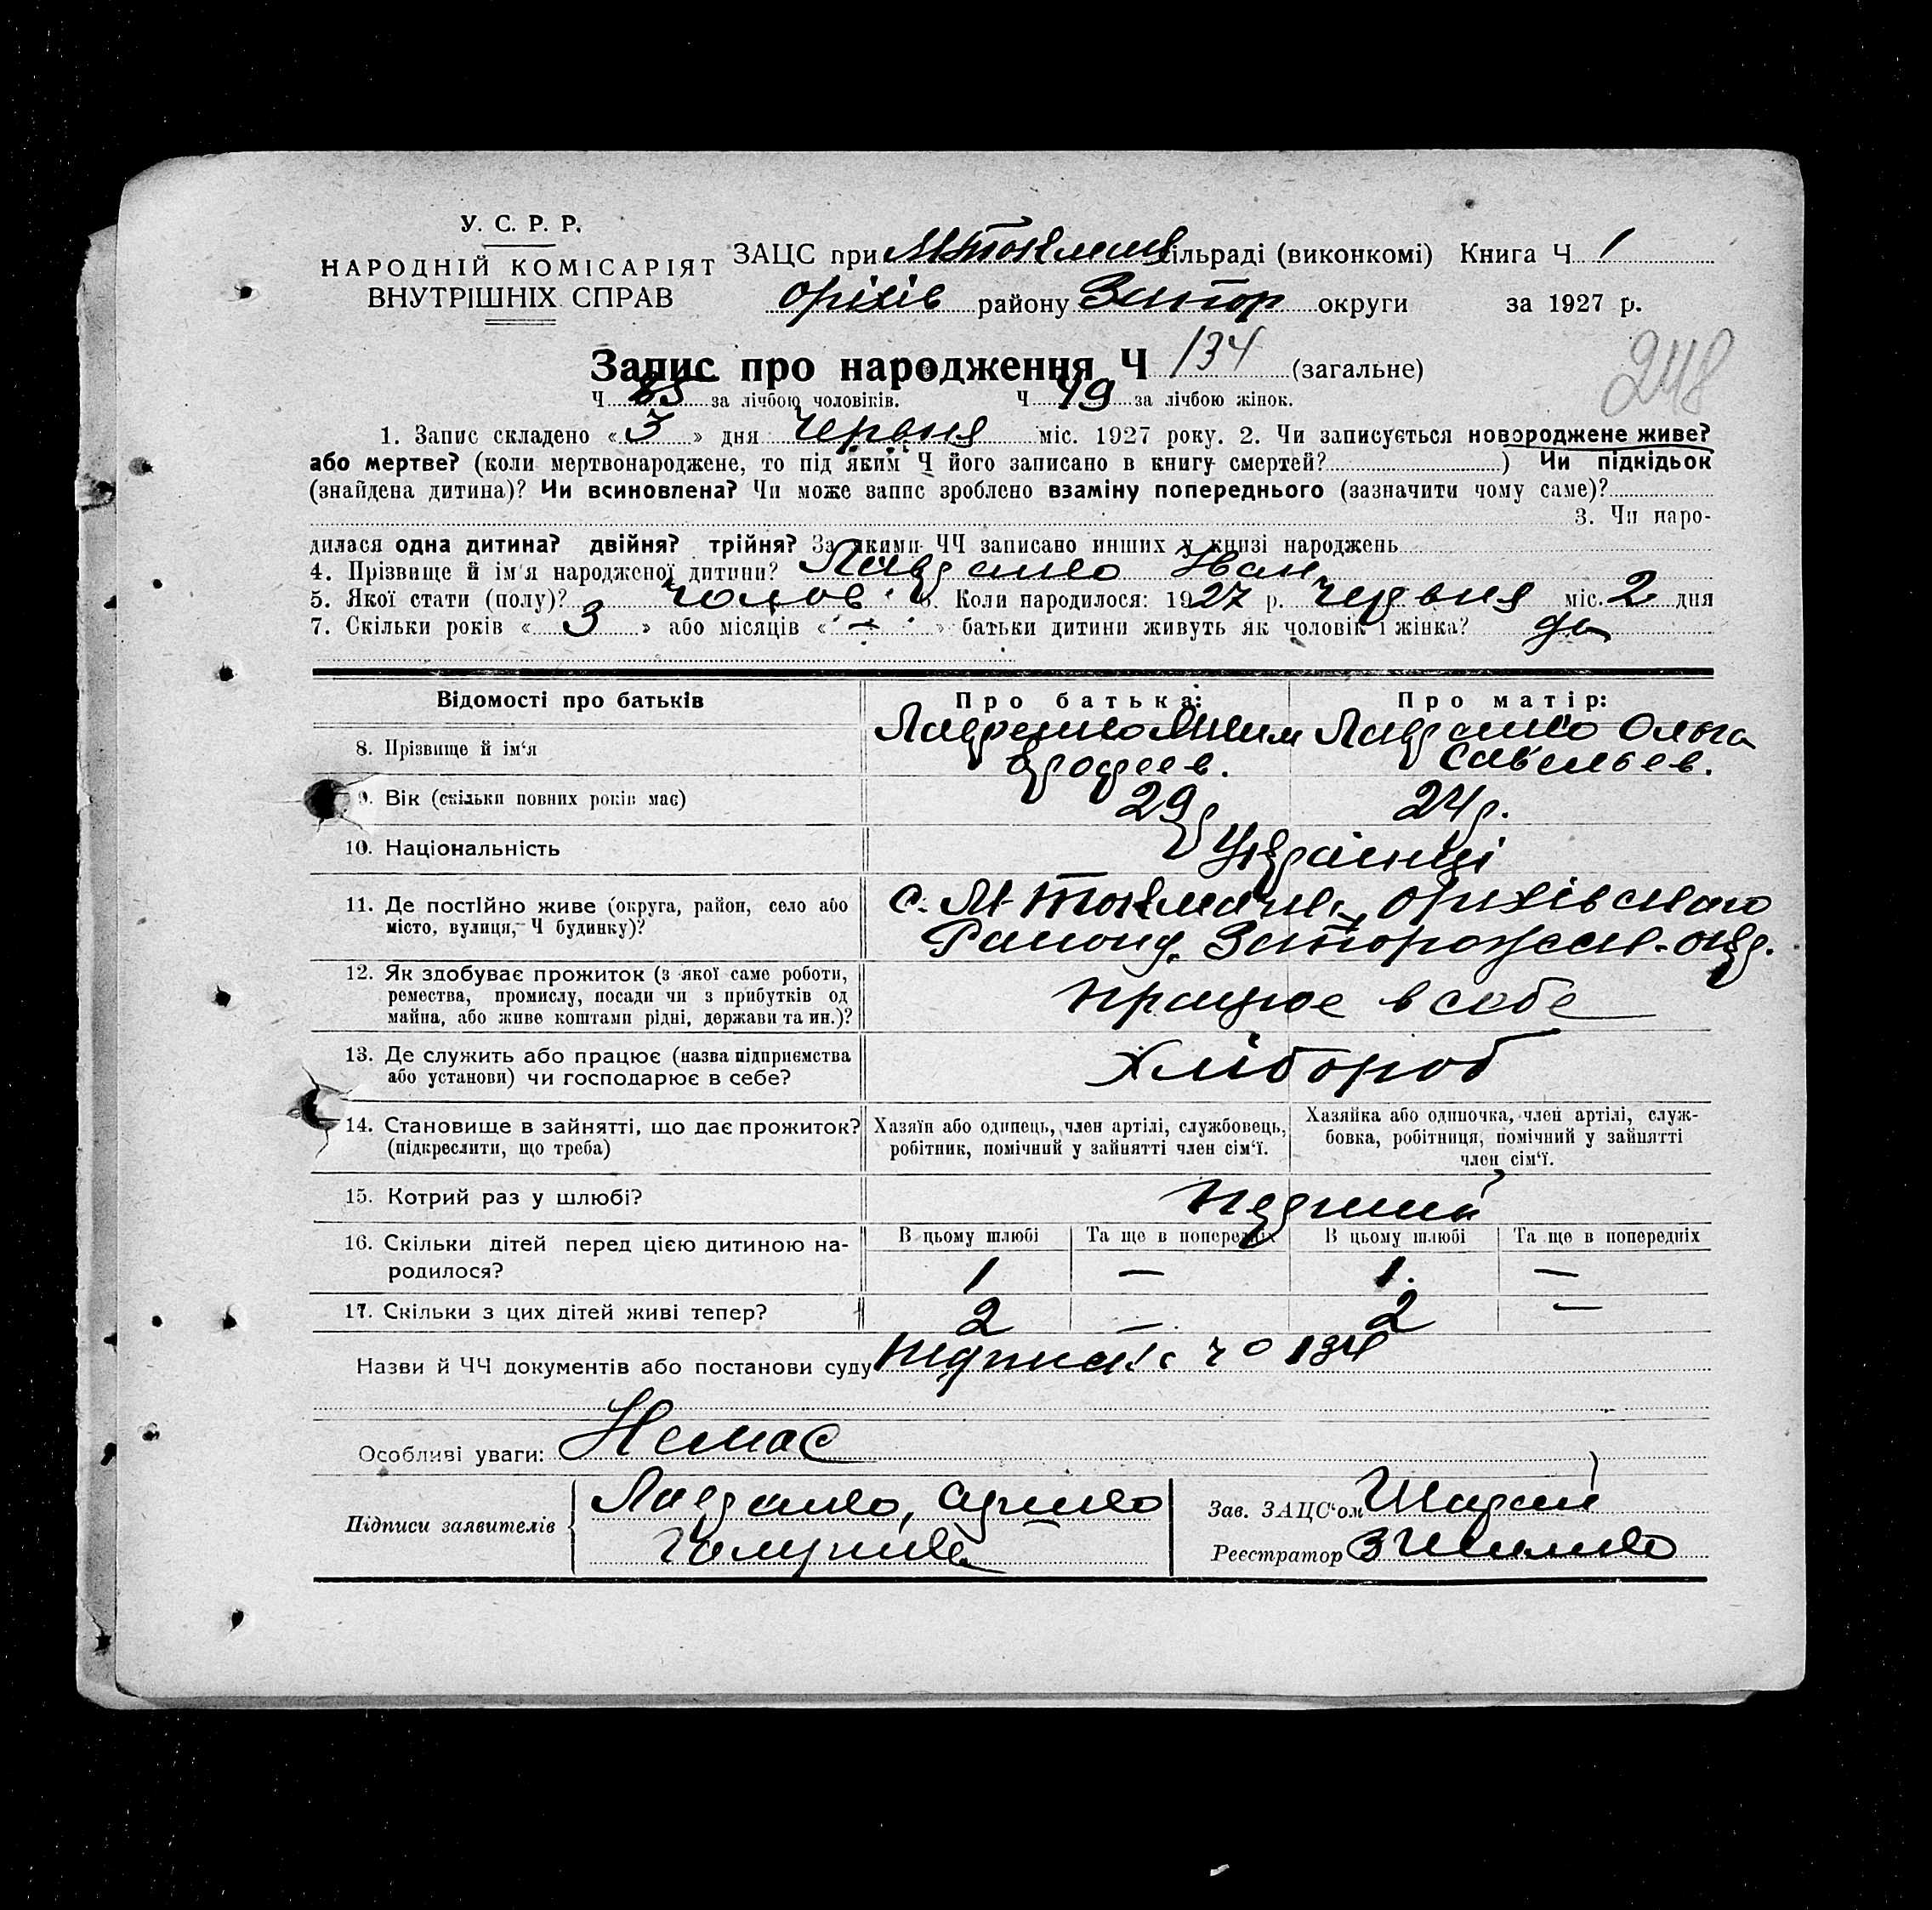 У. С. Р. Р.
НАРОДНІЙ КОМІСАРІЯТ
ВНУТРІШНІХ СПРАВ
ЗАЦС при сільраді (виконкомі) Книга Ч 1
Оріхів району Запор округи за 1927 р.
248
Запис про народження Ч 134 (загальне)
Ч 85 за лічбою чоловіків. Ч 49 за лічбою жінок.
1. Запис складено « 3 » дня червня міс. 1927 року. 2. Чи записується новороджене живе?
або мертве? (коли мертвонароджене, то під яким Ч його записано в книгу смертей? ) Чи підкідьок
(знайдена дитина)? Чи всиновлена? Чи може запис зроблено взаміну попереднього (зазначити чому саме)?
3. Чи наро-
дилася одна дитина? двійня? трійня? За якими ЧЧ записано инших у книзі народжень
4. Прізвище й ім'я народженої дитини? Лавренко Іван
5. Якої стати (полу)? чолов. 6. Коли народилося: 1927 р. червня міс. 2 дня
7. Скільки років « 3 » або місяців « — » батьки дитини живуть як чоловік і жінка? да
Відомості про батьків Про батька: Про матір:
8. Прізвище й ім'я Лавренко Лавренко Ольга
Савельев.
9. Вік (скільки повних років має) 29р 24р.
10. Національність Українці
11. Де постійно живе (округа, район, село або
місто, вулиця, Ч будинку)?
с. М-Токмачка, Оріхівського
Району, Запорожськ. окр.
12. Як здобуває прожиток (з якої саме роботи,
ремества, промислу, посади чи з прибутків од
майна, або живе коштами рідні, держави та ин.)?
працює в себе
13. Де служить або працює (назва підприємства
або установи) чи господарює в себе?
Хлібороб
14. Становище в зайнятті, що дає прожиток?
(підкреслити, що треба)
Хазяїн або одинець, член артілі, службовець,
робітник, помічний у зайнятті член сім'ї.
Хазяйка або одиночка, член артілі, служ-
бовка, робітниця, помічний у зайнятті
член сім'ї.
15. Котрий раз у шлюбі? Первий
16. Скільки дітей перед цією дитиною на-
родилося?
В цьому шлюбі Та ще в попередніх В цьому шлюбі Та ще в попередніх
1 — 1. —
17. Скільки з цих дітей живі тепер? 2 — 2 —
Назви й ЧЧ документів або постанови суду 134
Особливі уваги: Немає
Підписи заявителів Лавренко,
Зав. ЗАЦС'ом
Реєстратор